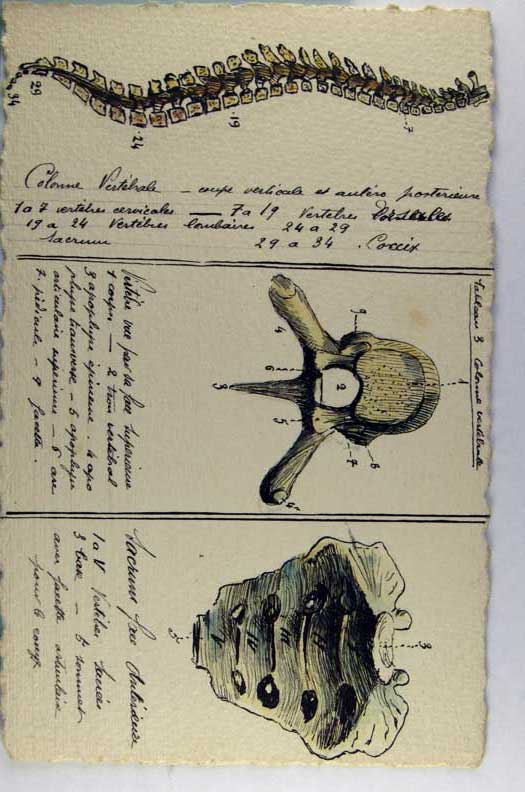 Tableau 3 Colonne vertébrale
34
29
24
19
7
Colonne Vertébrale – coupe verticale et antéro postérieure
1 a 7 vertèbres cervicales — 7 a 19 Vertèbres Dorsales
19 a 24 Vertèbres lombaires 24 a 29
Sacrum 29 a 34 . Coccix
1
2
3
4
4'
5
6
7
8
9
Vertèbre vue par sa face supérieure
1 corps — 2 trou vertébral
3 apophyse épineuse . 4 apo
physe transverse – 5 apophyse
articulaire supérieure – 6
7. pédicule – 9 facette .
3
I
II
III
IV
V
5
Sacrum face Antérieure
1 a V Vertèbres Sacrées
3 base – 5 sommet
avec facette articulaire
pour le coccyx